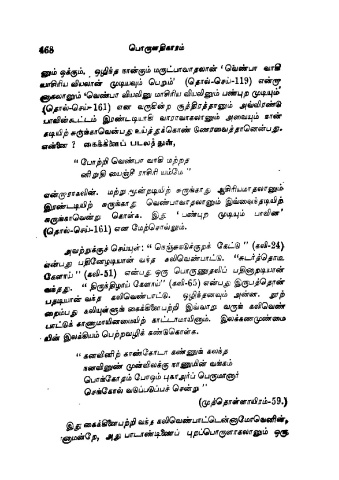 468 பொருளதிகாரம்
னும் ஒக்கும். ஒழிந்த நான்கும் மருட்பாவாதலான் ‘வெண்பா வாகி
வாசிரிய வியலான் முடியவும் பெறும்’ (தொல்-செய்-119) என்ரு
னாகலானும் ‘வெண்பா வியலினு மாசிரிய வியலினும் பண்புற முடியும்’
(தொல்-செய்-161) என வருகின்ற சூத்திரத்தானும் அவ்விரண்டு
பாவின்கூட்டம் இரண்டடியாகி வாராவாகலானும் அவையும் நான்
கடியிற் சுருங்காவென்பது உய்த்துக்கொண் டுணரவைத்தானென்பது.
என்னே? கைக்கிளைப் படலத்துள்,
“போற்றி வெண்பா வாகி மற்றத
னிறுதி பைஞ்சீ ராசிரி யம்மே”
என்றாராகலின். மற்று மூன்றடியிற் சுருங்காது ஆசிரியமாதலானும்
இரண்டடியிற் சுருங்காது வெண்பாவாதலானும் இவ்வைந்தடியிற்
சுருங்காவென்று கொள்க. இது ‘பண்புற முடியும் பாவின’
(தொல்-செய்-161) என மேற்சொல்லும்.
அவற்றுக்குச் செய்யுள்: “நெஞ்சுநடுக்குறக் கேட்டு” (கலி-24)
என்பது பதினேழடியான் வந்த கலிவெண்பாட்டு. “சுடர்த்தொடீஇ
கேளாய்” (கலி-51) என்பது ஒரு பொருணுதலிப் பதினாறடியான்
வந்தது. “திருந்திழாய் கேளாய்” (கலி-65) என்பது இருபத்தொன்
பதடியான் வந்த கலிவெண்பாட்டு. ஒழிந்தனவும் அன்ன. நூற்
றைம்பது கலியுள்ளுங் கைக்கிளைபற்றி இவ்வாறு வருங் கலிவெண்
பாட்டுக் காணாமாயினமையிற் காட்டாமாயினாம். இலக்கணமுண்மை
யின் இலக்கியம் பெற்றவழிக் கண்டுகொள்க.
“கனவினிற் காண்கொடா கண்ணுங் கலந்த
நனவினுண் முன்விலக்கு நாணுமின் வங்கம்
பொங்கோதம் போழும் புகாஅர்ப் பெருமானார்
செங்கோல் வடுப்படுப்பச் சென்று”
(முத்தொள்ளாயிரம்-59.)
இது கைக்கிளைபற்றி வந்த கலிவெண்பாட்டென்னாமோவெனின்,
னாமன்றே, அது பாடாண்டிணைப் புறப்பொருளாகலானும் ஒரு